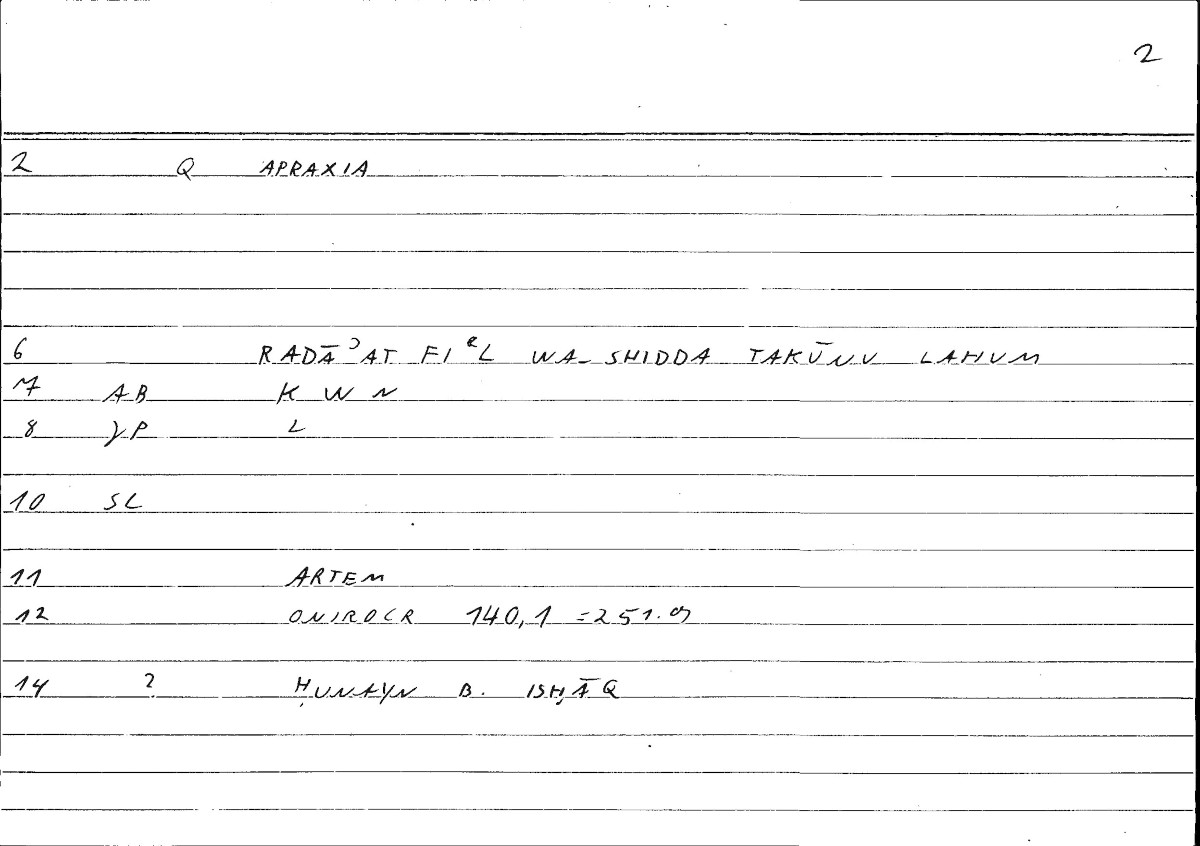 2
2 Q APRAXIA
6 RADĀʾAT FIʿL WA-SHIDDA TAKŪNU LAHUM
7 AB K W N
8 γP L
10 SL
11 ARTEM
12 ONIROCR 140,1 =251.9
14 ? ḤUNAYN B. ISḤĀQ